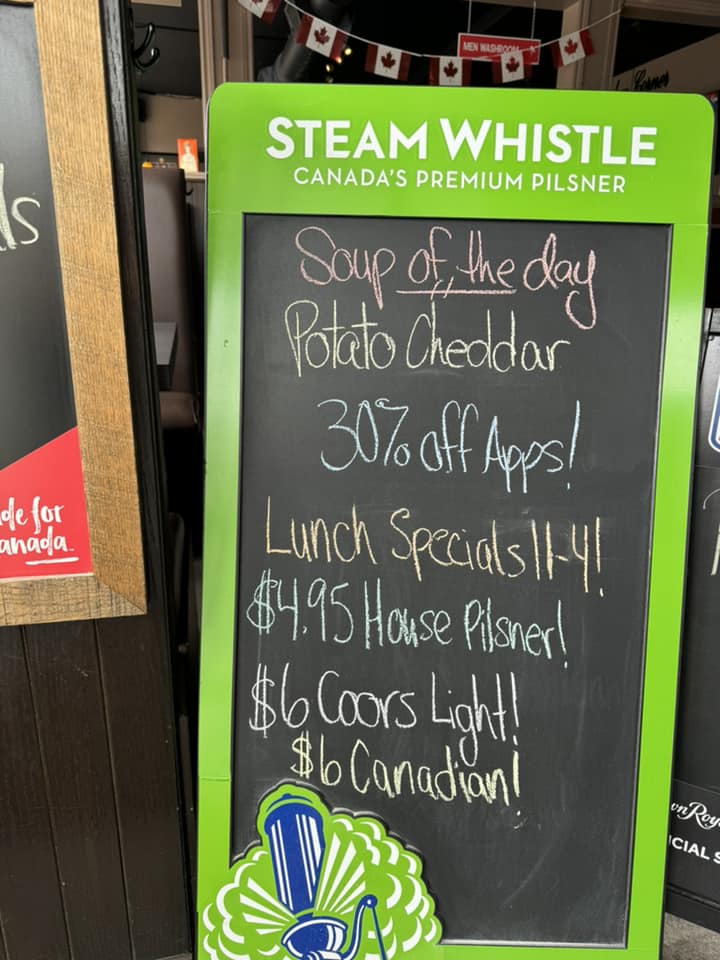 MEN WASHROOM
STEAM WHISTLE
CANADA'S PREMIUM PILSNER
Soup of the day
Potato Cheddar
30% off Apps!
Lunch Specials 11-4!
$4.95 House Pilsner!
$6 Coors Light!
$6 Canadian!
ls
de for
anada
wn Roy
ICIAL S